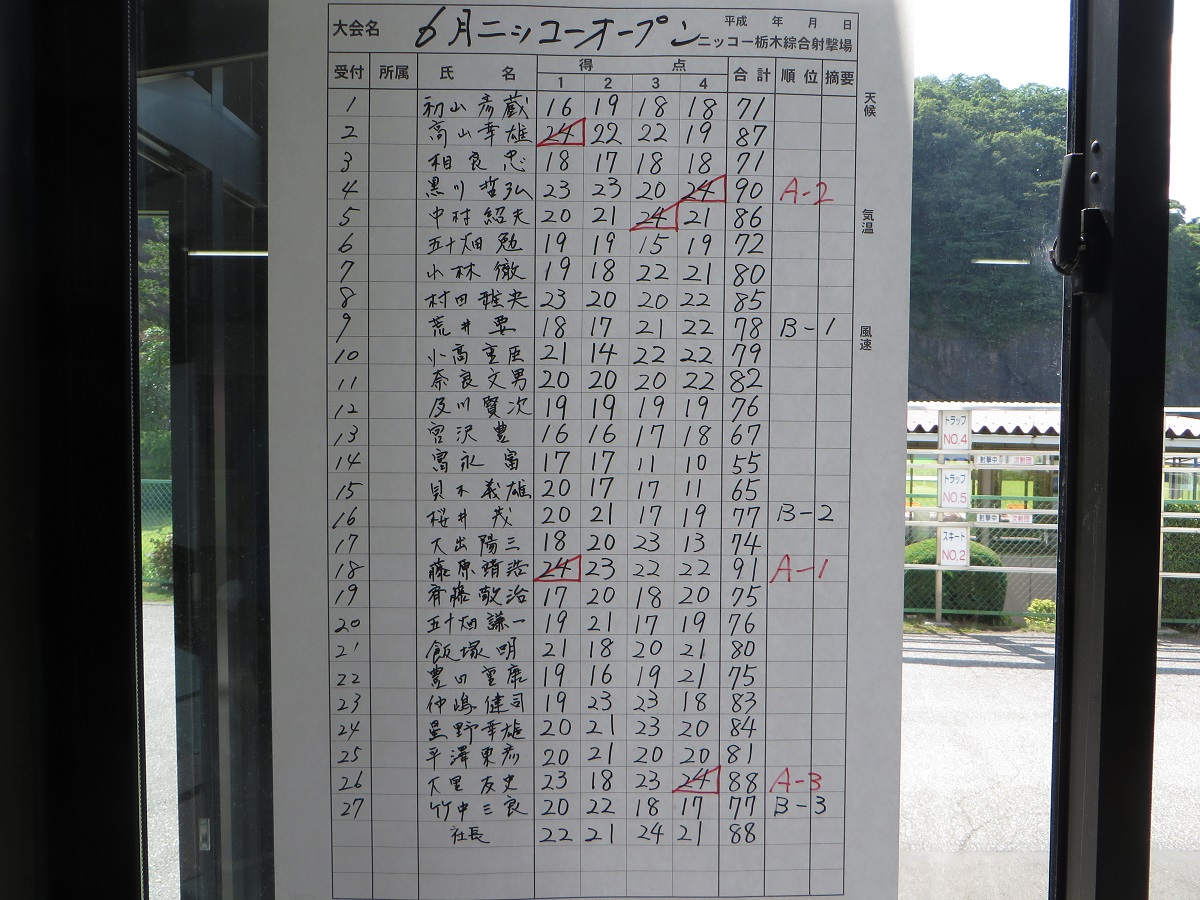 大会名 6月ニッコーオープン 平成 年 月 日
ニッコー栃木綜合射撃場
受付 所属 氏 名 得 点 合計 順位 摘要
1 2 3 4
1 初山彦蔵 16 19 18 18 71
2 高山幸雄 24 22 22 19 87
3 相良忠 18 17 18 18 71
4 黒川哲弘 23 23 20 24 90 A-2
5 中村紹夫 20 21 24 21 86
6 五十畑勉 19 19 15 19 72
7 小林徹 19 18 22 21 80
8 村田雅央 23 20 20 22 85
9 荒井要 18 17 21 22 78 B-1
10 小高重臣 21 14 22 22 79
11 奈良文男 20 20 20 22 82
12 及川賢次 19 19 19 19 76
13 宮沢豊 16 16 17 18 67
14 富永富 17 17 11 10 55
15 貝木義雄 20 17 17 11 65
16 桜井茂 20 21 17 19 77 B-2
17 大出陽三 18 20 23 13 74
18 藤原靖浩 24 23 22 22 91 A-1
19 斉藤敬治 17 20 18 20 75
20 五十畑謙一 19 21 17 19 76
21 飯塚明 21 18 20 21 80
22 豊田重康 19 16 19 21 75
23 仲嶋健司 19 23 23 18 83
24 星野幸雄 20 21 23 20 84
25 平澤東彦 20 21 20 20 81
26 大里友史 23 18 23 24 88 A-3
27 竹中三良 20 22 18 17 77 B-3
社長 22 21 24 21 88
天候
気温
風速
トラップ
NO.4
射撃中 次射団
トラップ
NO.5
射撃中 次射団
スキート
NO.2